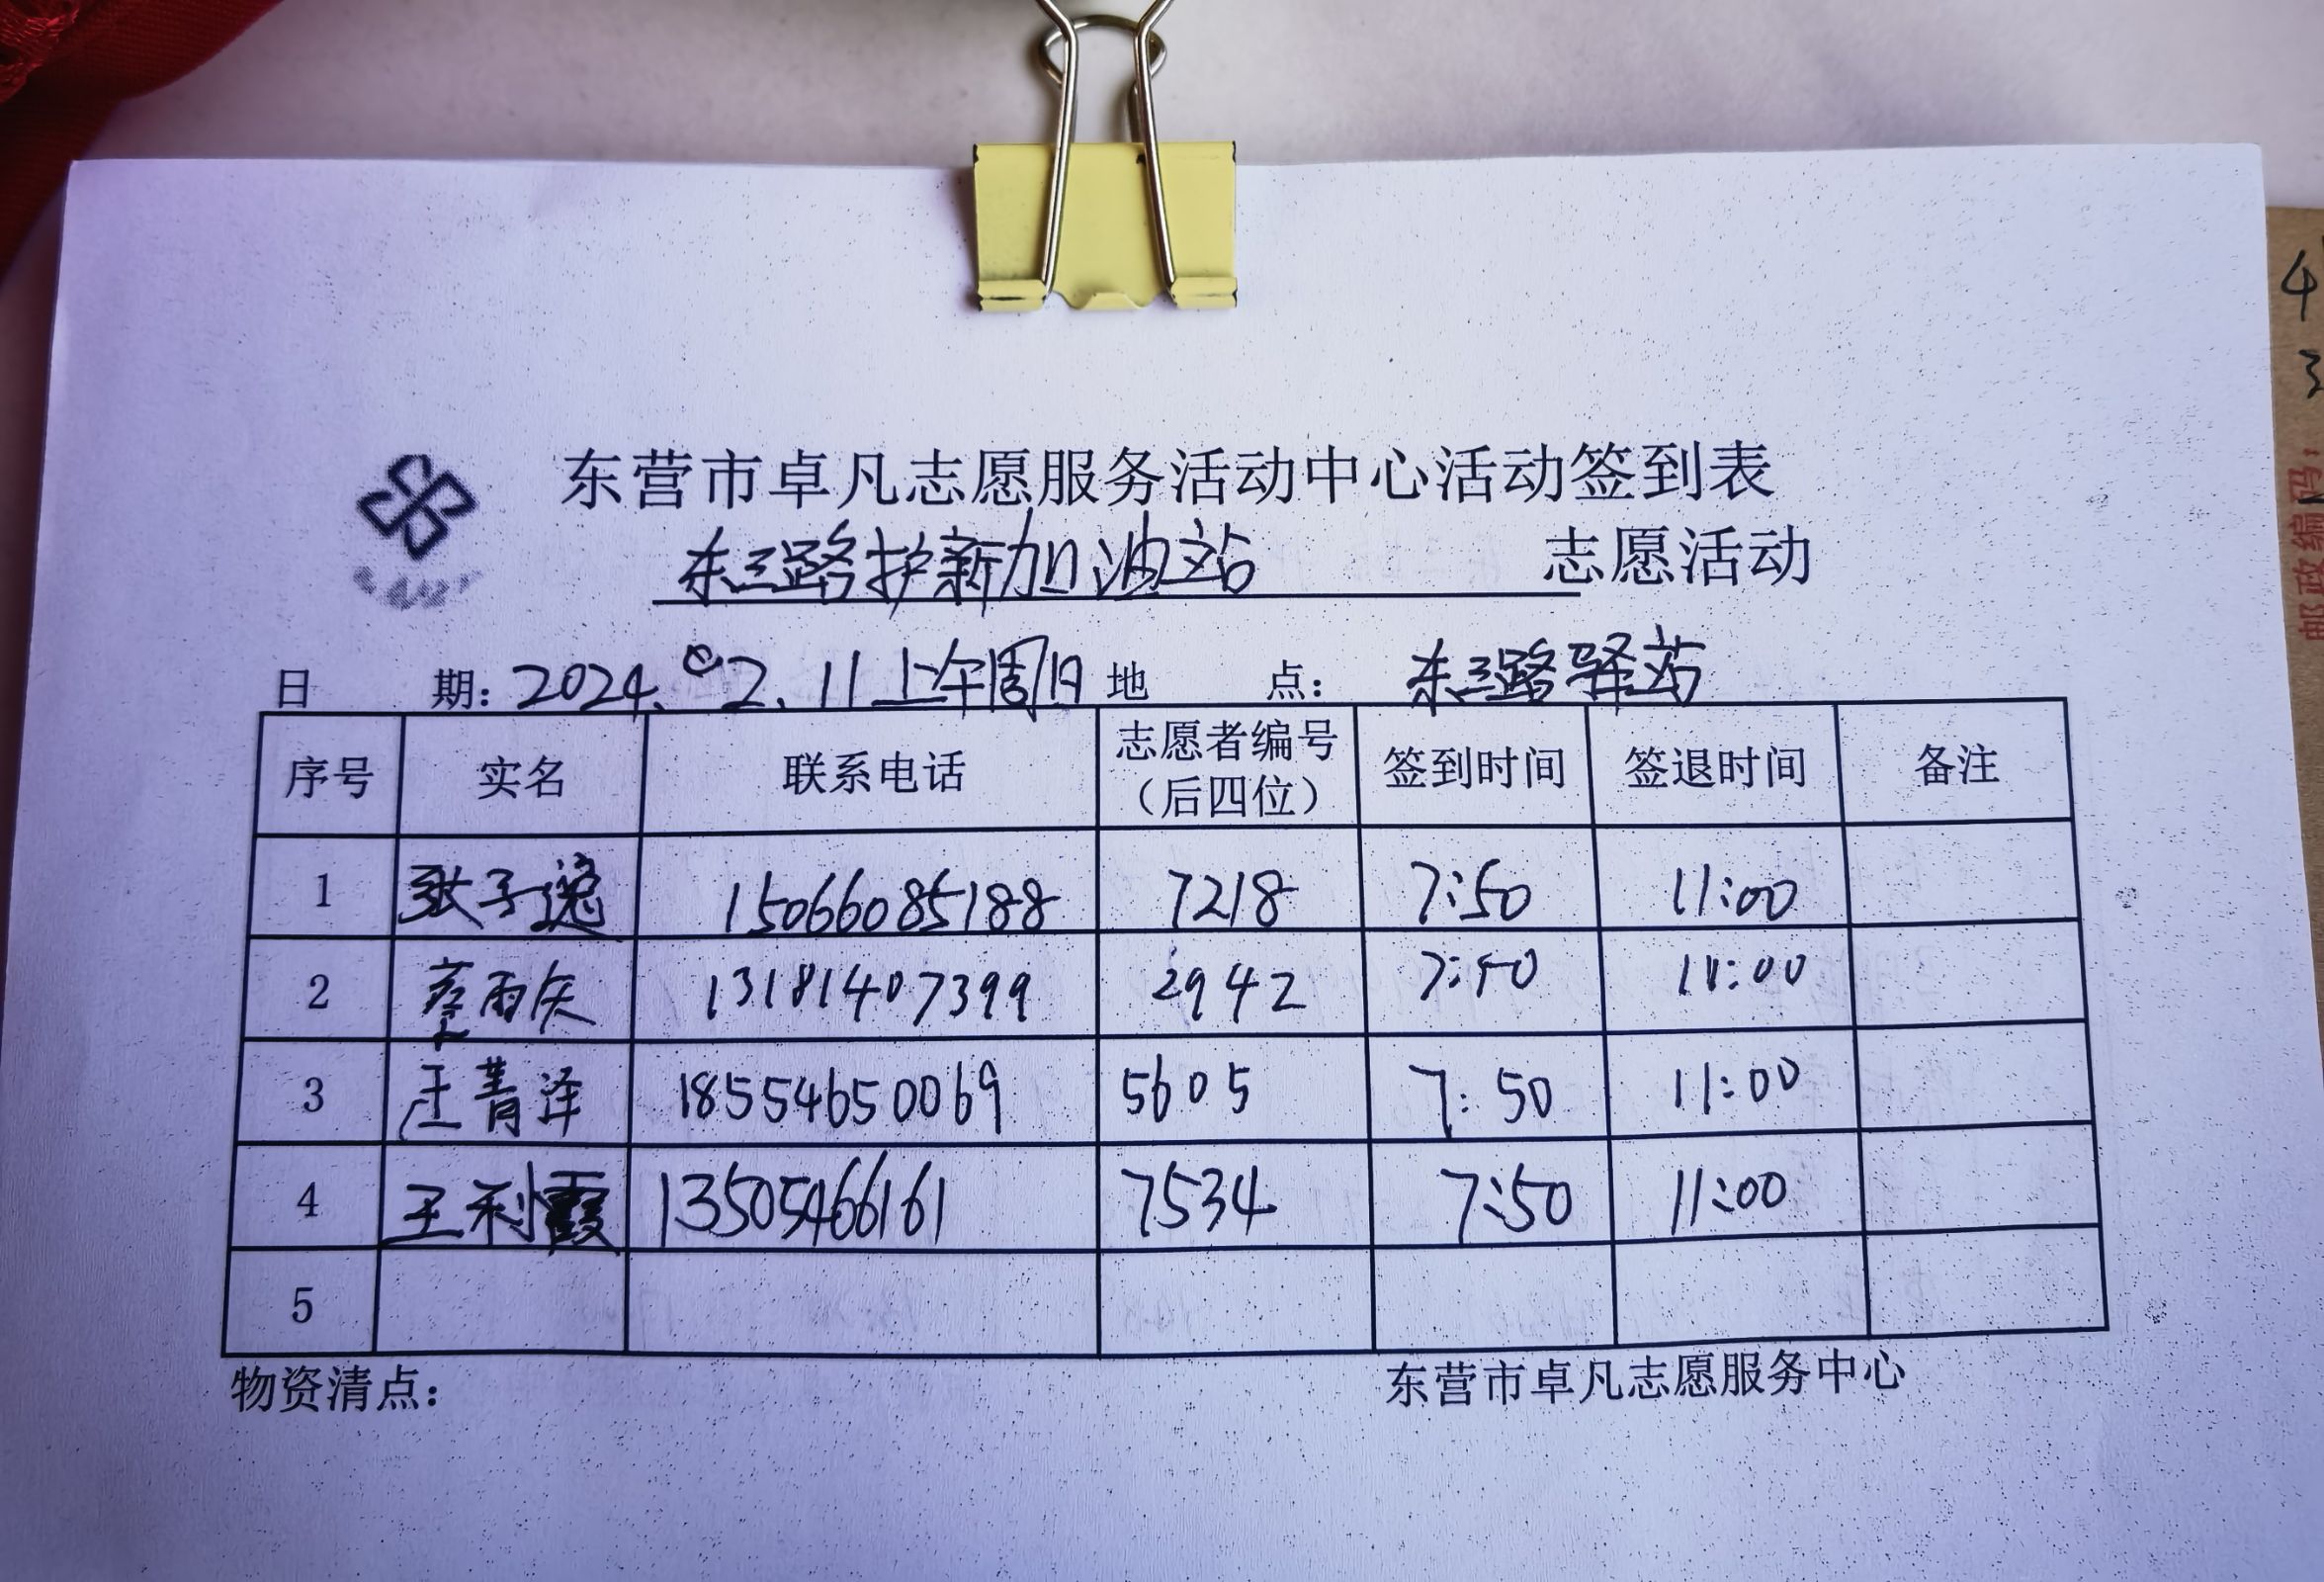 东营市卓凡志愿服务活动中心活动签到表
东三路护新加油站 志愿活动
日期：2024.02.11上午周日 地点：东三路驿站
序号 实名 联系电话 志愿者编号（后四位） 签到时间 签退时间 备注
1 张子逸 15066085188 7218 7:50 11:00
2 蔡雨辰 13181407399 2942 7:50 11:00
3 王菁泽 18554650069 5605 7:50 11:00
4 王利霞 13505466161 7534 7:50 11:00
5
物资清点： 东营市卓凡志愿服务中心
4
3
邮政编码：